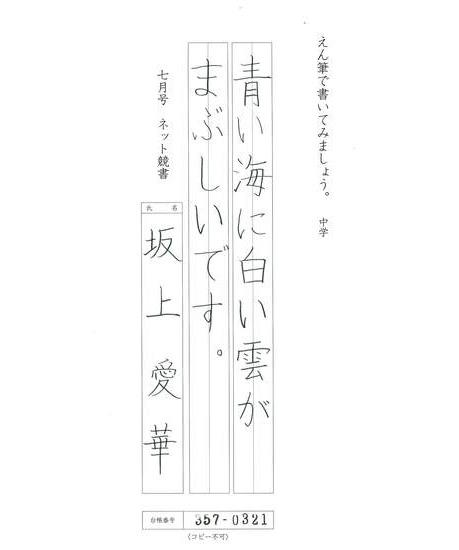 えん筆で書いてみましょう。 中学
青い海に白い雲が
まぶしいです。
七月号 ネット競書
氏 名
坂上愛華
台帳番号 357-0321
(コピー不可)